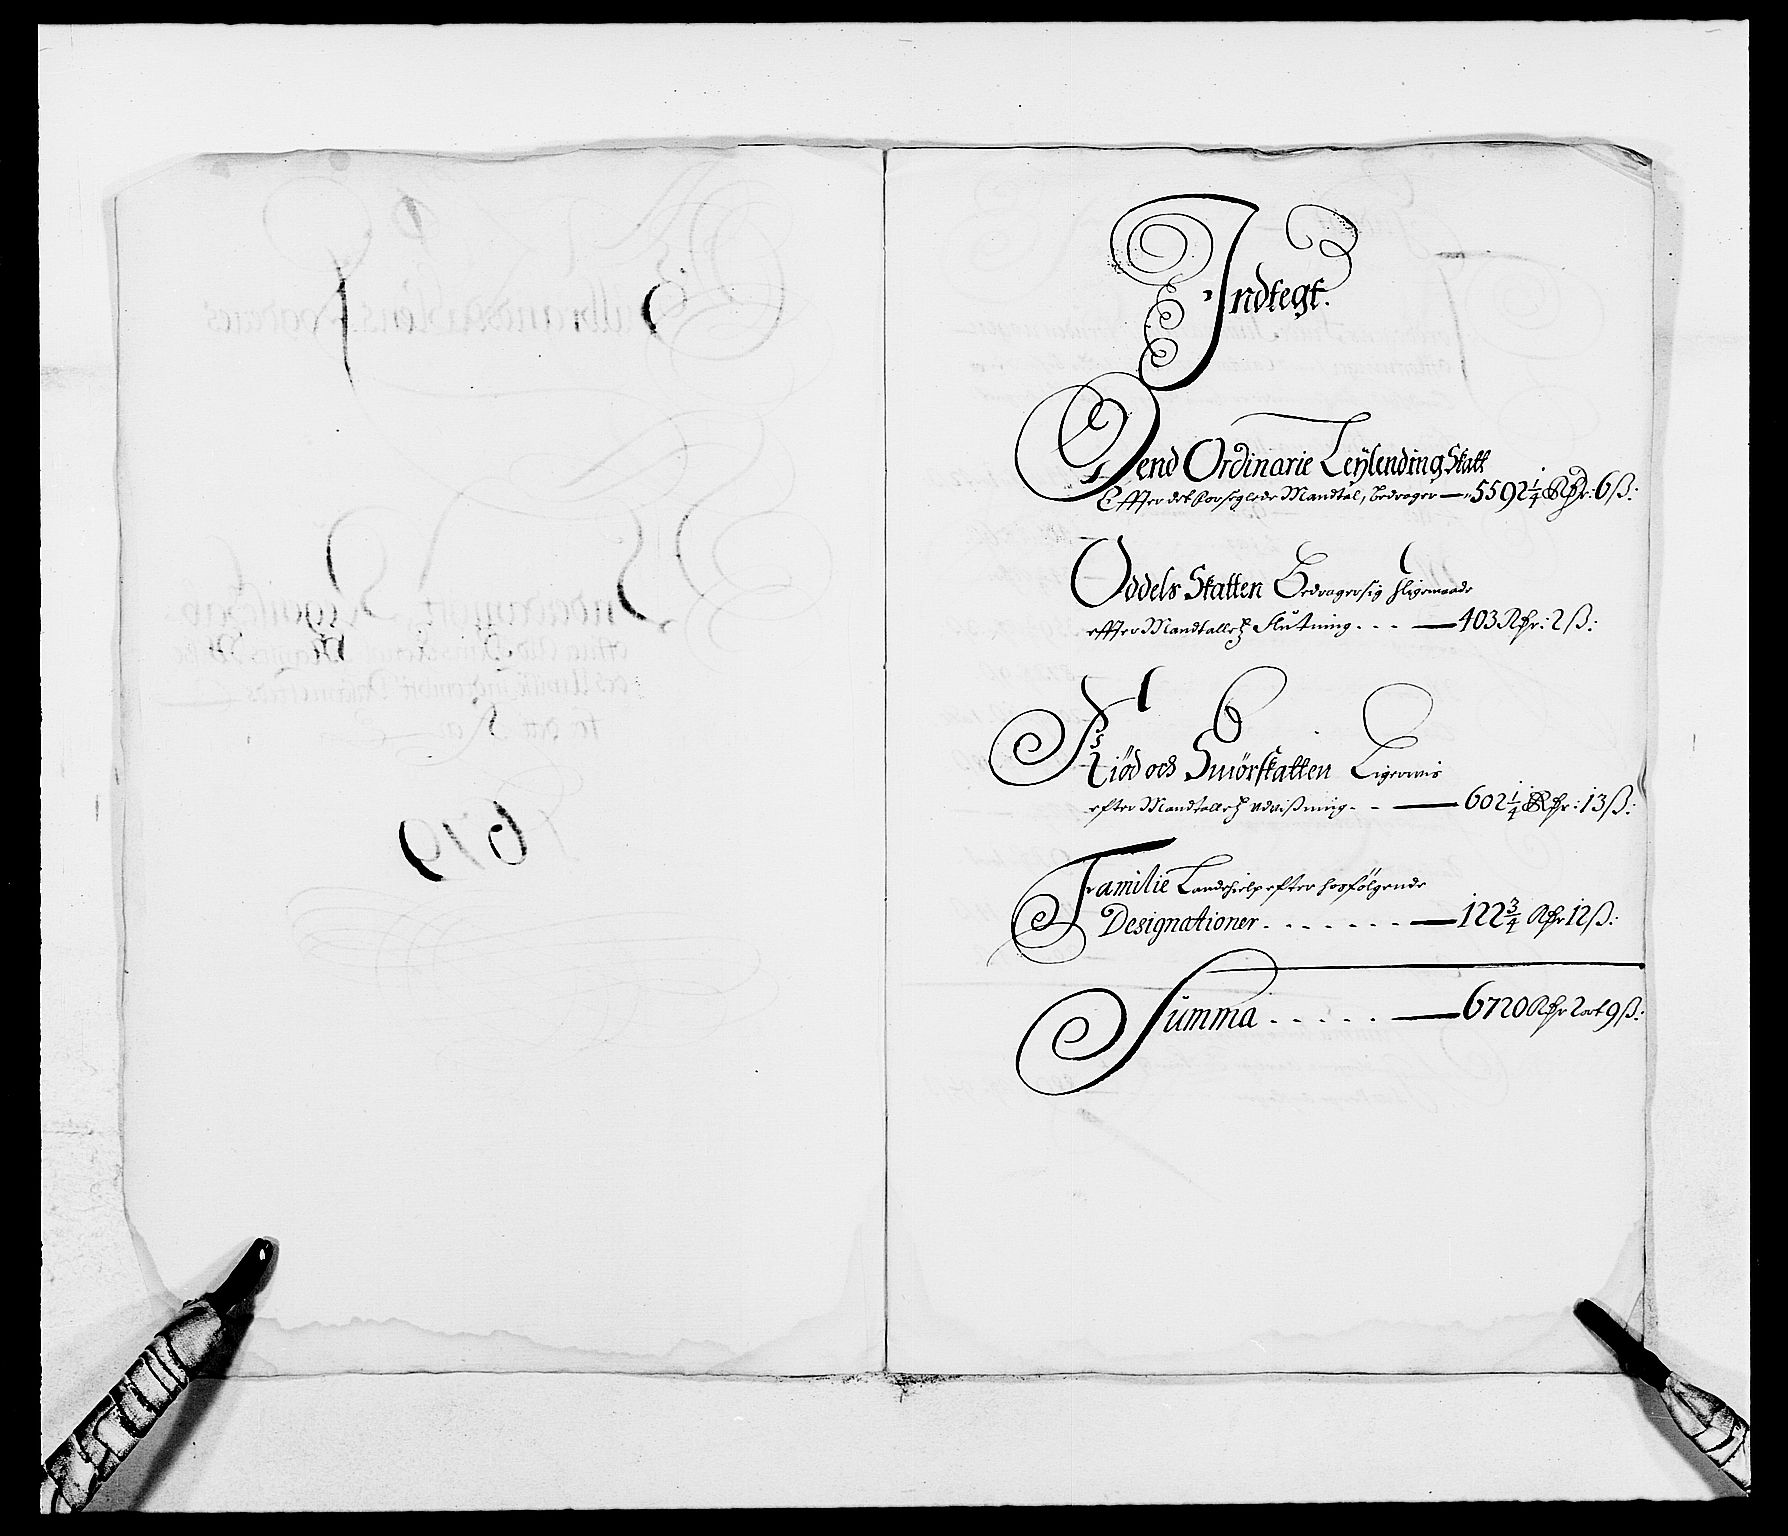 Indtegt.
Dend Ordinarie Leÿlending Skatt
Effter det forseglede Mandtal, bedrager — 5592 1/4 Rdr: 6 ß:
Oddels Skatten Bedrager sig sligemaade
effter Mandtalletz Slutning . . . — 403 Rdr: 2 ß:
Kiöd och Smörskatten Ligerviis
efter Mandtalletz udvißning - - — 602 1/4 Rdr: 13 ß:
Familie Landehielp efter hosfölgende
Designationer . . . . . . . — 122 3/4 Rdr 12 ß:
Summa . . . . . — 6720 Rdr 2 ort 9 ß: